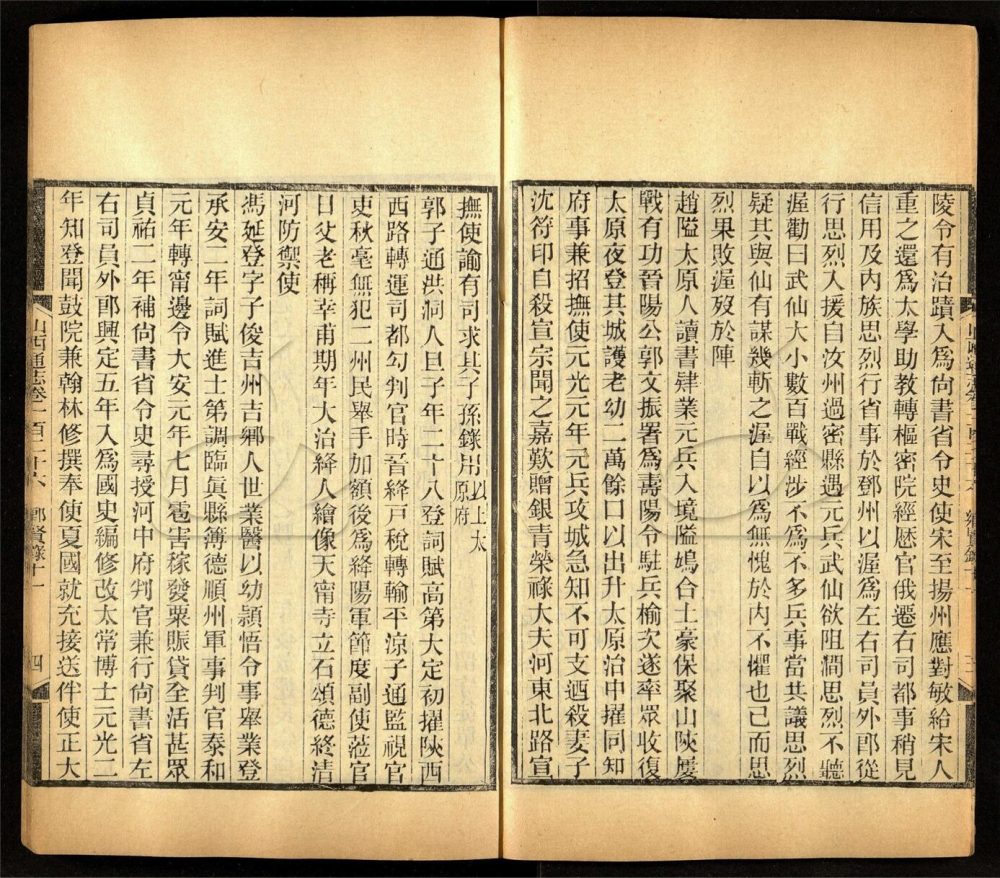 陵令有治蹟入為尚書省令史使宋至揚州應對敏給宋人
重之還為太學助教轉樞密院經歷官俄遷右司都事稍見
信用及內族思烈行省事於鄧州以渥為左右司員外郎從
行思烈入援自汝州過密縣遇元兵武仙欲阻澗思烈不聽
渥勸曰武仙大小數百戰經涉不為不多兵事當共議思烈
疑其與仙有謀幾斬之渥自以為無愧於內不懼也已而思
烈果敗渥歿於陣
趙隘太原人讀書肄業元兵入境隘鳩合土豪保聚山陝屢
戰有功晉陽公郭文振署為壽陽令駐兵榆次遂率眾收復
太原夜登其城護老幼二萬餘口以出升太原治中擢同知
府事兼招撫使元光元年元兵攻城急知不可支迺殺妻子
沈符印自殺宣宗聞之嘉歎贈銀青榮祿大夫河東北路宣
撫使諭有司求其子孫錄用以上太原府
郭子通洪洞人旦子年二十八登詞賦高第大定初擢陝西
西路轉運司都勾判官時晉絳戶稅轉輸平涼子通監視官
吏秋毫無犯二州民舉手加額後為絳陽軍節度副使蒞官
日父老稱幸甫期年大治絳人繪像天甯寺立石頌德終清
河防禦使
馮延登字子俊吉州吉鄉人世業醫以幼穎悟令事舉業登
承安二年詞賦進士第調臨眞縣簿德順州軍事判官泰和
元年轉甯邊令大安元年七月雹害稼發粟賑貸全活甚眾
貞祐二年補尚書省令史尋授河中府判官兼行尚書省左
右司員外郎興定五年入為國史編修改太常博士元光二
年知登聞鼓院兼翰林修撰奉使夏國就充接送伴使正大
山西通志卷一百二十六 鄉賢錄十一 四